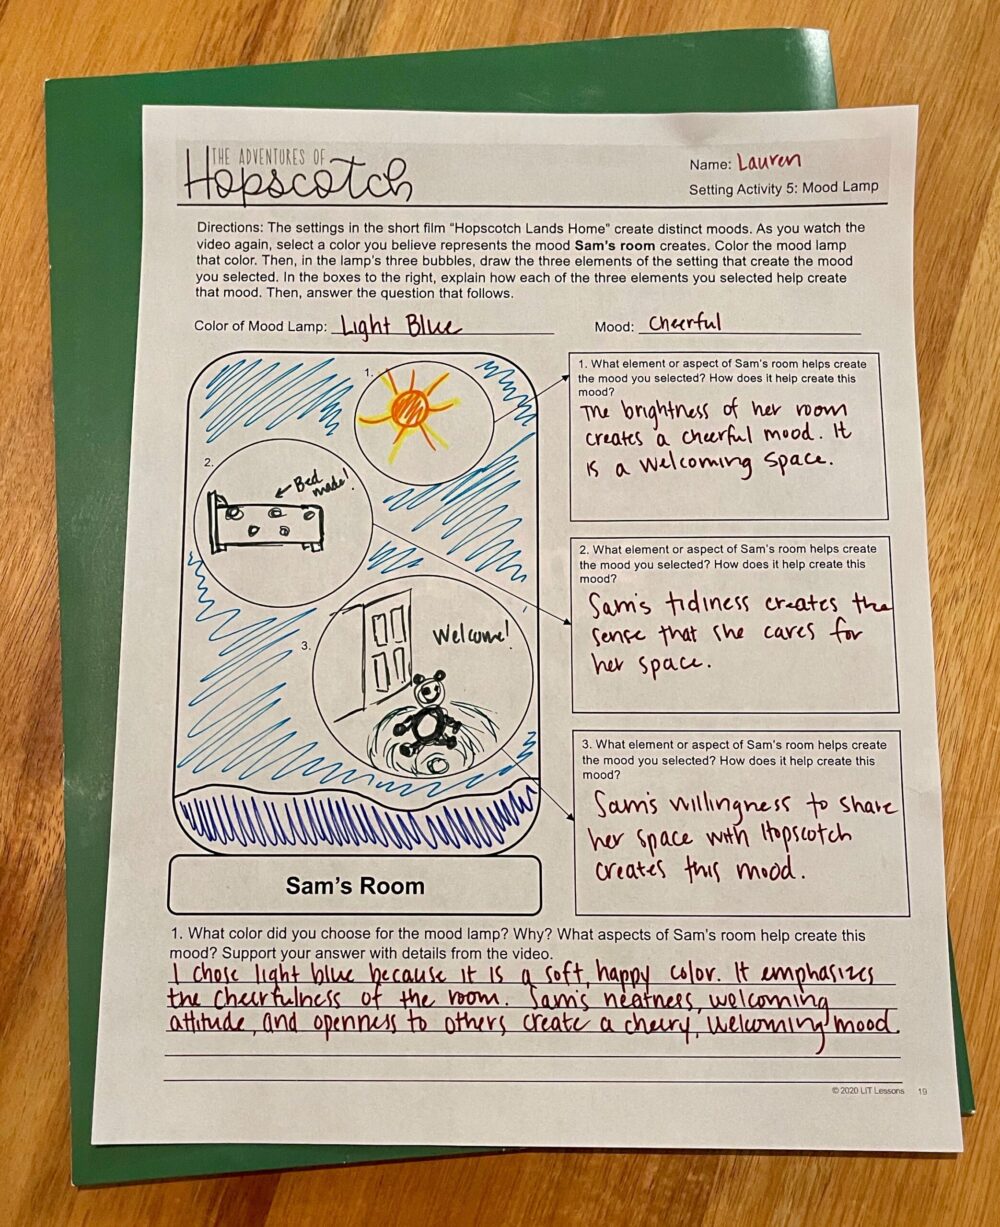 THE ADVENTURES OF
Hopscotch
Name: Lauren
Setting Activity 5: Mood Lamp
Directions: The settings in the short film "Hopscotch Lands Home" create distinct moods. As you watch the
video again, select a color you believe represents the mood Sam's room creates. Color the mood lamp
that color. Then, in the lamp's three bubbles, draw the three elements of the setting that create the mood
you selected. In the boxes to the right, explain how each of the three elements you selected help create
that mood. Then, answer the question that follows.
Color of Mood Lamp: Light Blue
Mood: Cheerful
1.
2.
Bed
made!
3.
Welcome!
Sam's Room
1. What element or aspect of Sam's room helps create
the mood you selected? How does it help create this
mood?
The brightness of her room
creates a cheerful mood. It
is a welcoming space.
2. What element or aspect of Sam's room helps create
the mood you selected? How does it help create this
mood?
Sam's tidiness creates the
sense that she cares for
her space.
3. What element or aspect of Sam's room helps create
the mood you selected? How does it help create this
mood?
Sam's willingness to share
her space with Hopscotch
creates this mood.
1. What color did you choose for the mood lamp? Why? What aspects of Sam's room help create this
mood? Support your answer with details from the video.
I chose light blue because it is a soft, happy color. It emphasizes
the cheerfulness of the room. Sam's neatness, welcoming
attitude, and openness to others create a cheery, welcoming mood.
© 2020 LIT Lessons 19